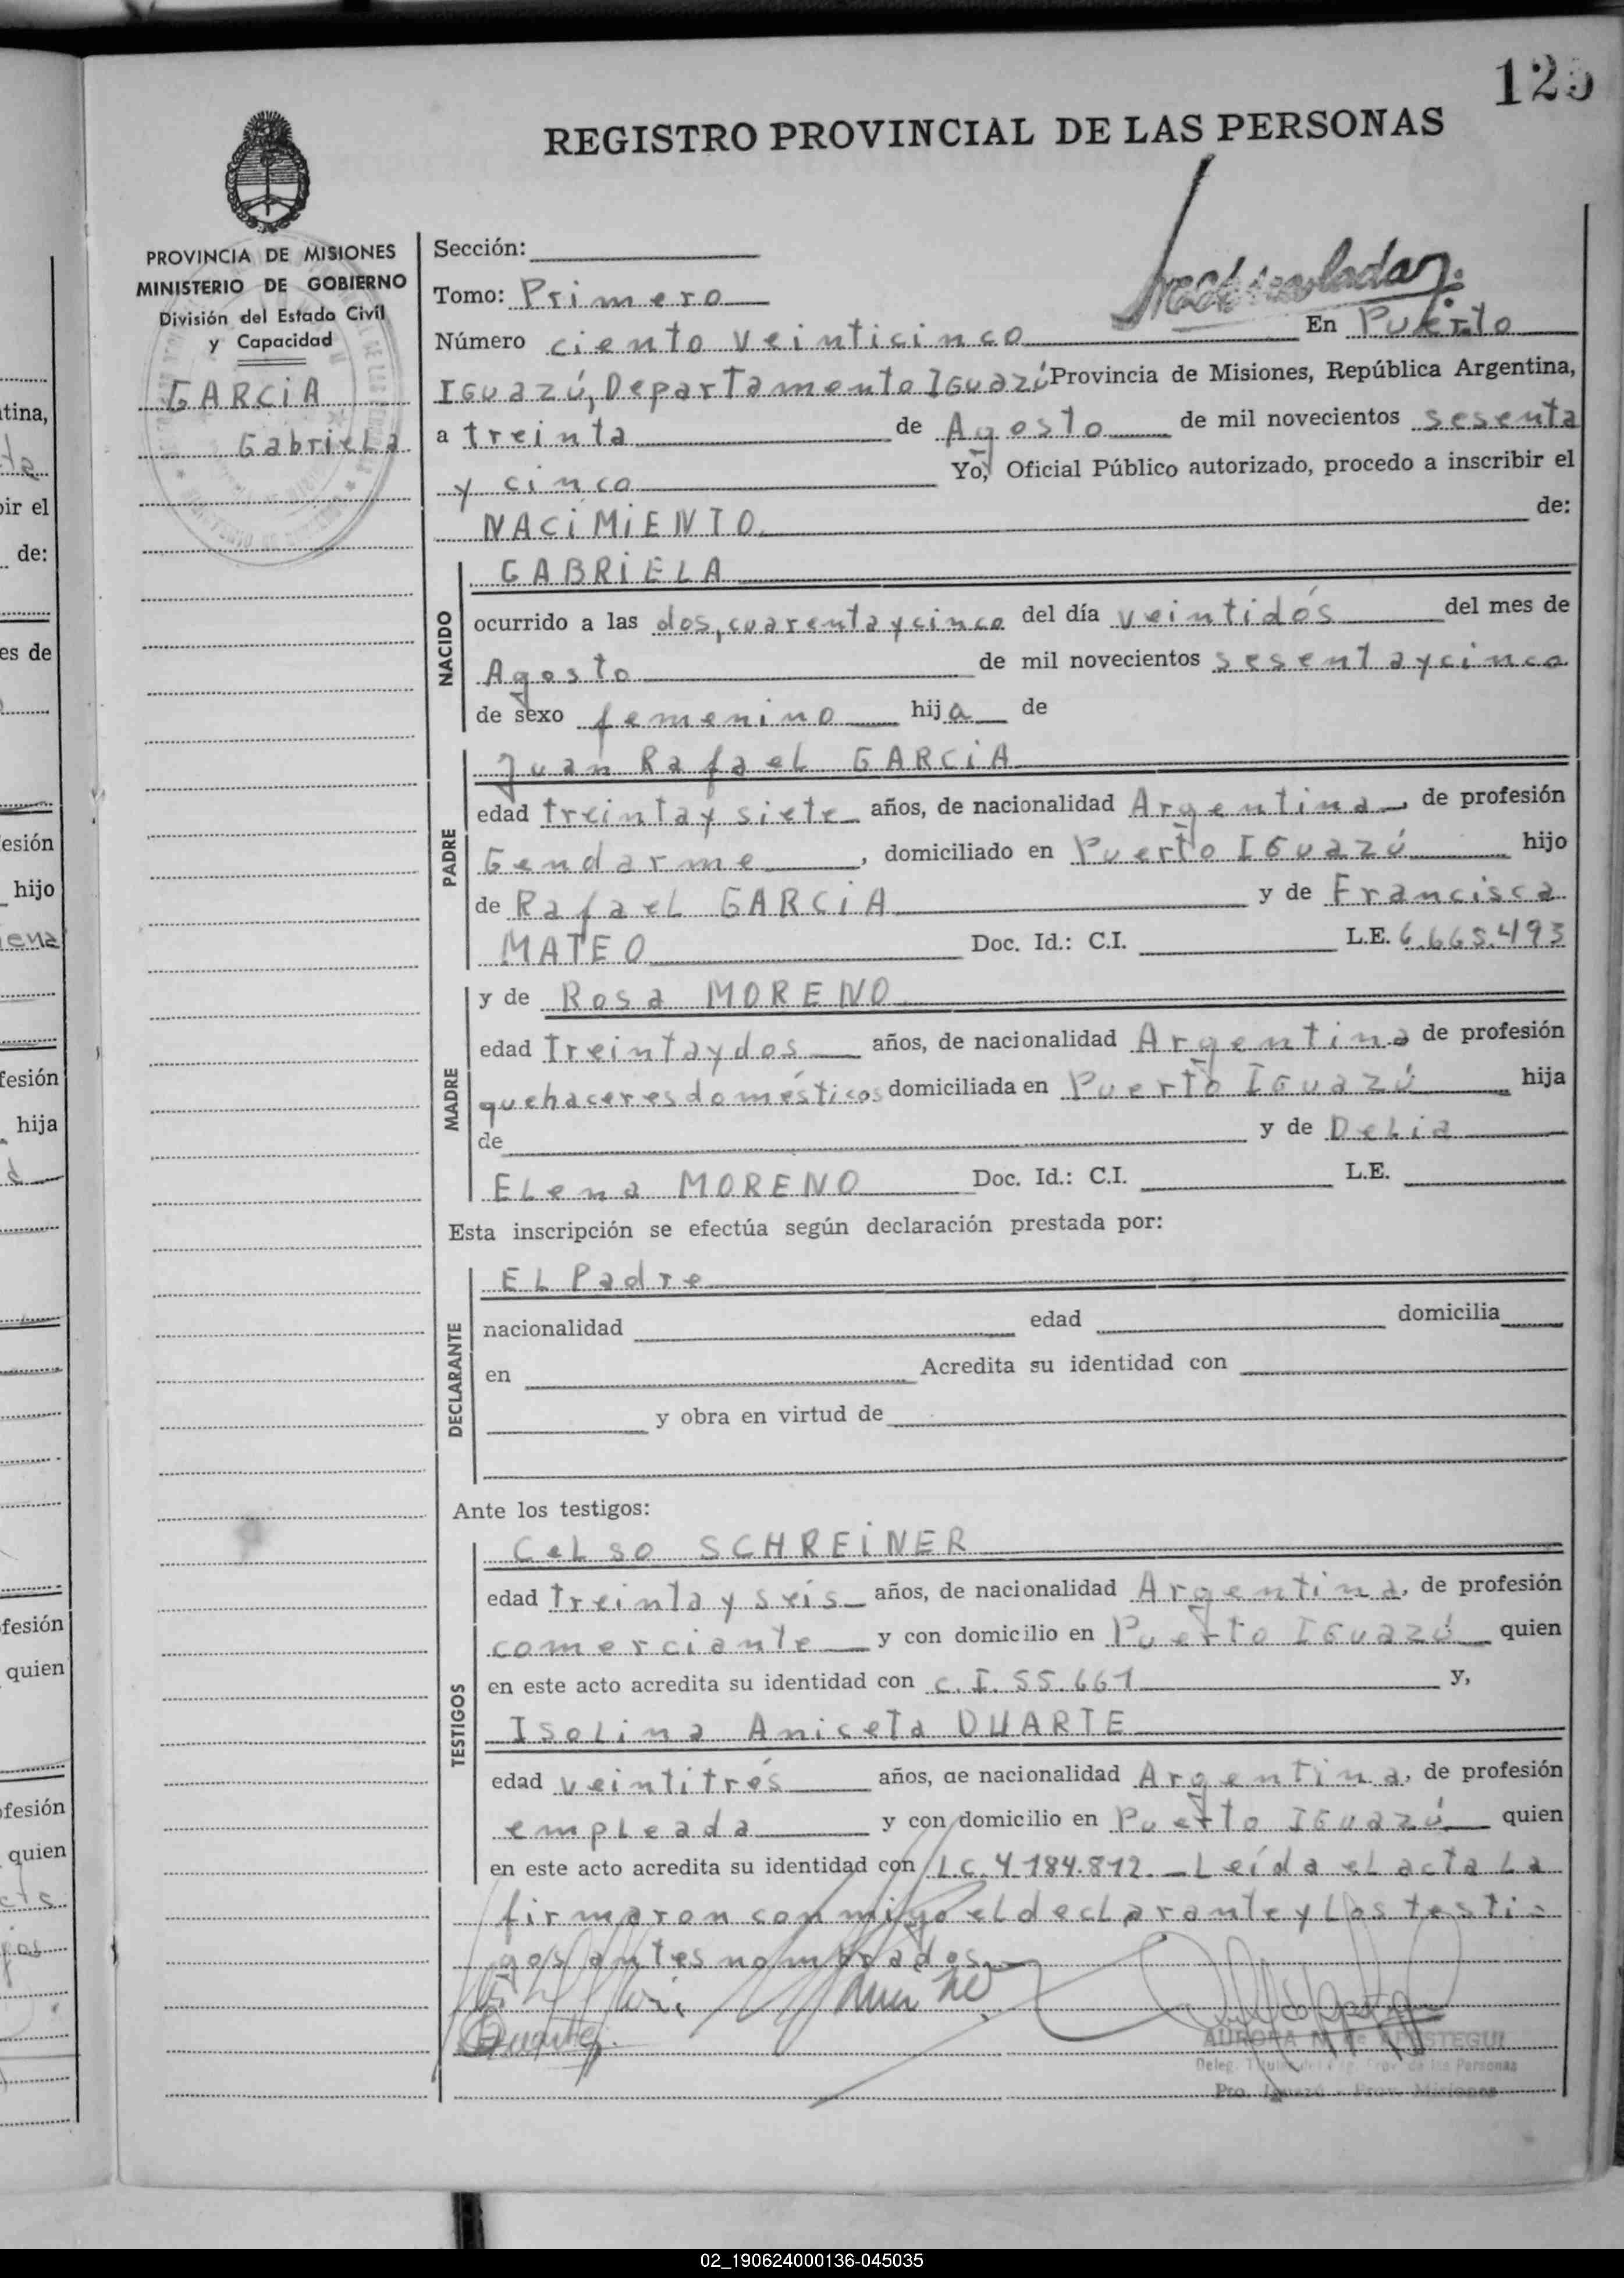 125
REGISTRO PROVINCIAL DE LAS PERSONAS
PROVINCIA DE MISIONES
MINISTERIO DE GOBIERNO
División del Estado Civil
y Capacidad
GARCiA
GabrieLa
Sección:
Tomo: Primero
Número ciento veinticinco En Puerto
IGuazú, Departamento IGuazú Provincia de Misiones, República Argentina,
a treinta de Agosto de mil novecientos sesenta
y cinco Yo, Oficial Público autorizado, procedo a inscribir el
NACiMiENTO de:
NACIDO
GABRiELA
ocurrido a las dos, cuarenta y cinco del día veintidós del mes de
Agosto de mil novecientos sesenta y cinco
de sexo femenino hija de
PADRE
Juan RafaeL GARCiA
edad treinta y siete años, de nacionalidad Argentina, de profesión
Gendarme, domiciliado en Puerto IGuazú hijo
de RafaeL GARCiA y de Francisca
MATEO Doc. Id.: C.I. L.E. 6.665.493
MADRE
y de Rosa MORENO
edad treinta y dos años, de nacionalidad Argentina de profesión
quehaceres domésticos domiciliada en Puerto IGuazú hija
de y de DeLia
ELena MORENO Doc. Id.: C.I. L.E.
Esta inscripción se efectúa según declaración prestada por:
DECLARANTE
EL Padre
nacionalidad edad domicilia
en Acredita su identidad con
y obra en virtud de
Ante los testigos:
TESTIGOS
CeLso SCHREiNER
edad treinta y seis años, de nacionalidad Argentina, de profesión
comerciante y con domicilio en Puerto IGuazú quien
en este acto acredita su identidad con C.I. 55.661 y,
IsoLina Aniceta DUARTE
edad veintitrés años, de nacionalidad Argentina, de profesión
empLeada y con domicilio en Puerto IGuazú quien
en este acto acredita su identidad con L.C. 4.184.812. Leída eL acta La
firmaron conmigo el decLarante y Los testi-
gos antes nombrados.
Duarte
AURORA M. de APESTEGUI
Deleg. Titular del Reg. Prov. de las Personas
Pto. Iguazú - Prov. Misiones
02_190624000136-045035